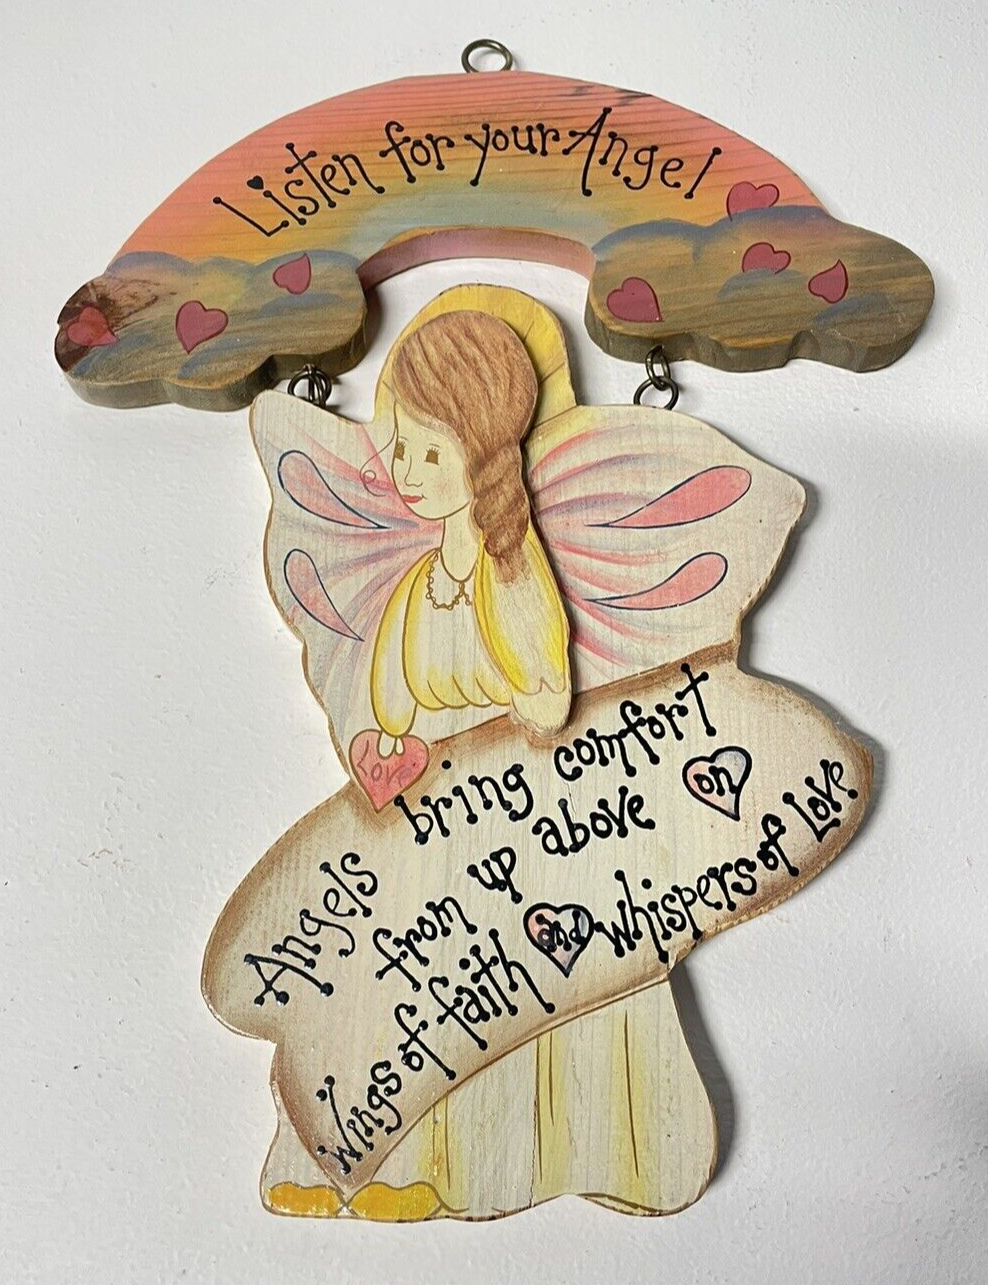 Listen for your Angel
Love
Angels bring comfort
from up above on
Wings of faith and whispers of Love